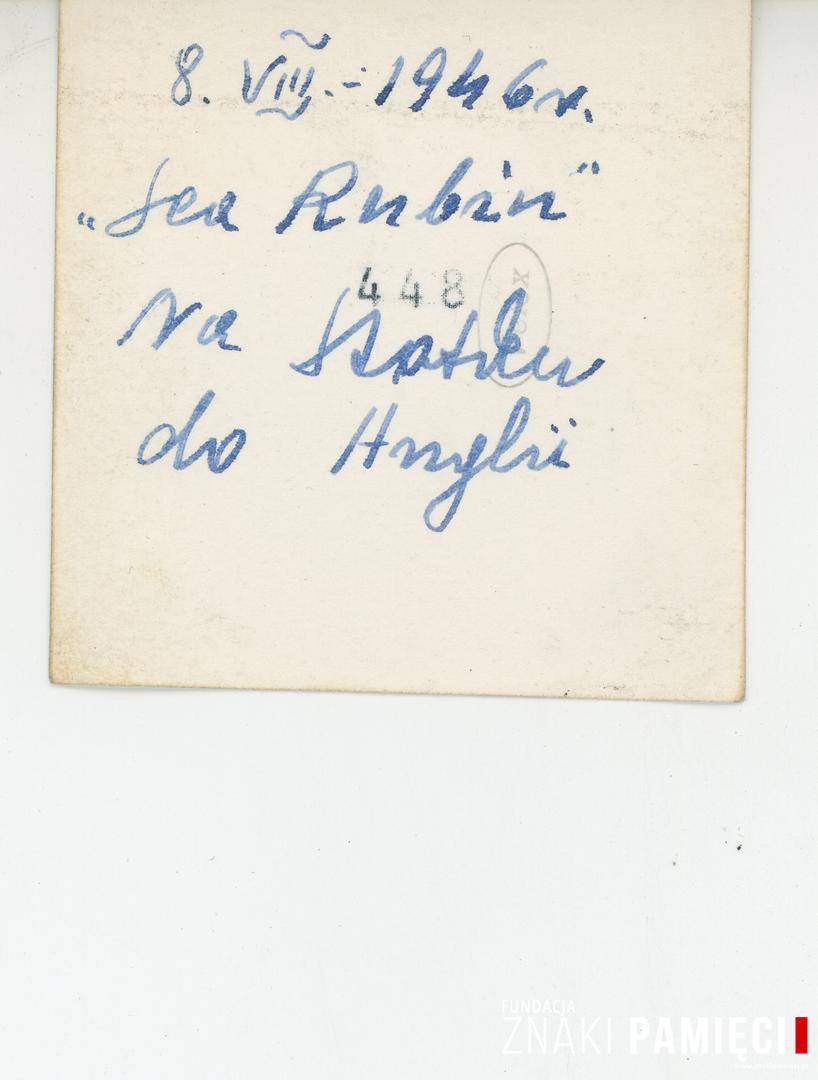 8. VIII. - 1946 r.
„Sea Rubin"
448
Na Statku
do Anglii
FUNDACJA
ZNAKI PAMIĘCI